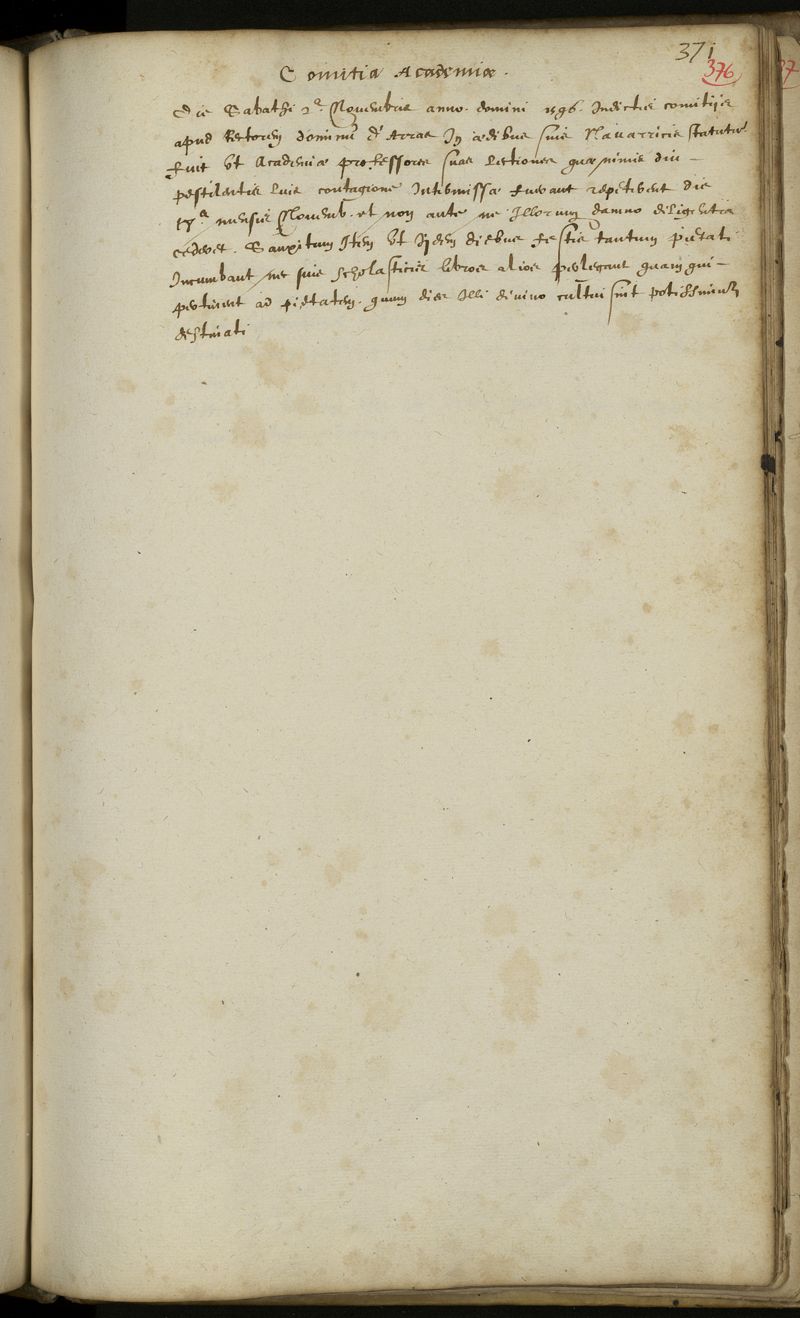 371
376
Comitia Academiæ.
Die Sabathi 2ª Novembris anno domini 1596. Indictis comitijs
apud Rectorem dominū d' Arras In ædibus suis Navarricis statutū
fuit Vt Academiæ professores suas lectiones quæ nimis diu –
pestilentis luis contagione Intermissæ fuerant repeterent die
mensis Novemb. et non ante ne Illorum damno diligentia
cederet. Item Vt Ijdem diebus festis tantum pietati
Incumbant, nec suis scholasticis libros alios perlegant quam qui –
pertinent ad pietatem. quum dies Illi divino cultui sint potissimum
destinati